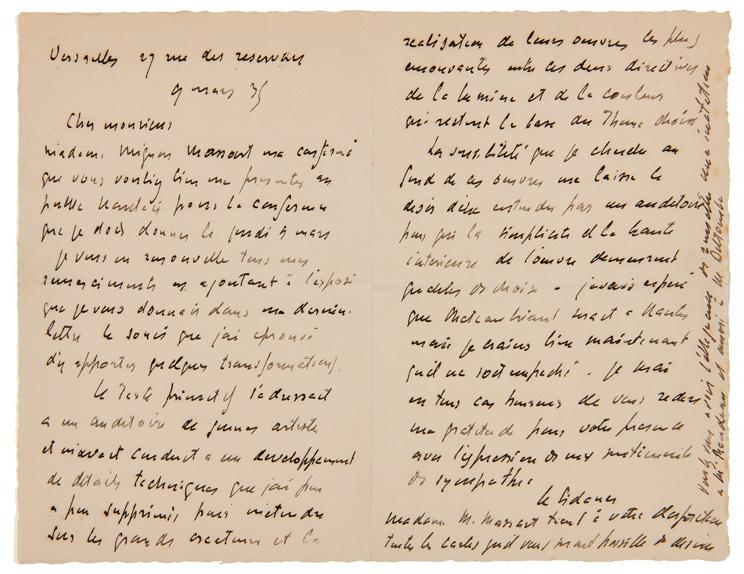 Versailles 27 rue des reservoirs
9 mars 35
Cher monsieur
madame Mignon Massart me confirme
que vous voulez bien me presenter au
public Nantais pour la conference
que je dois donner le jeudi mars
je vous en renouvelle tous mes
remerciements en ajoutant à l'exposé
que je vous donnais dans ma dernière
lettre le souci que j'ai eprouvé
d'y apporter quelques transformations.
Le Texte primitif s'adressait
a un auditoire de jeunes artistes
et m'avait conduit a un developpement
de détails techniques que j'ai peu
a peu supprimés pour m'etendre
sur les grands createurs et la
realisation de leurs oeuvres les plus
emouvantes entre ces deux directives
de la lumiere et de la couleur
qui restent la base du Theme choisi
La sensibilité que je cherche au
fond de ces oeuvres me laisse le
desir d'être entendu par un auditoire
pour qui la simplicité et la beauté
interieure de l'oeuvre demeurent
de choix - j'avais esperé
que Chateaubriant serait a Nantes
mais je crains bien maintenant
qu'il ne soit empeché - je serai
en tous cas heureux de vous redire
ma gratitude pour votre presence
avec l'expression de mes sentiments
de sympathie
Le Sidaner
madame M. Massart tient à votre disposition
toutes les cartes qu'il vous serait possible de desirer
avoir l'obligeance de remettre une invitation
a Mr et aussi a Mr